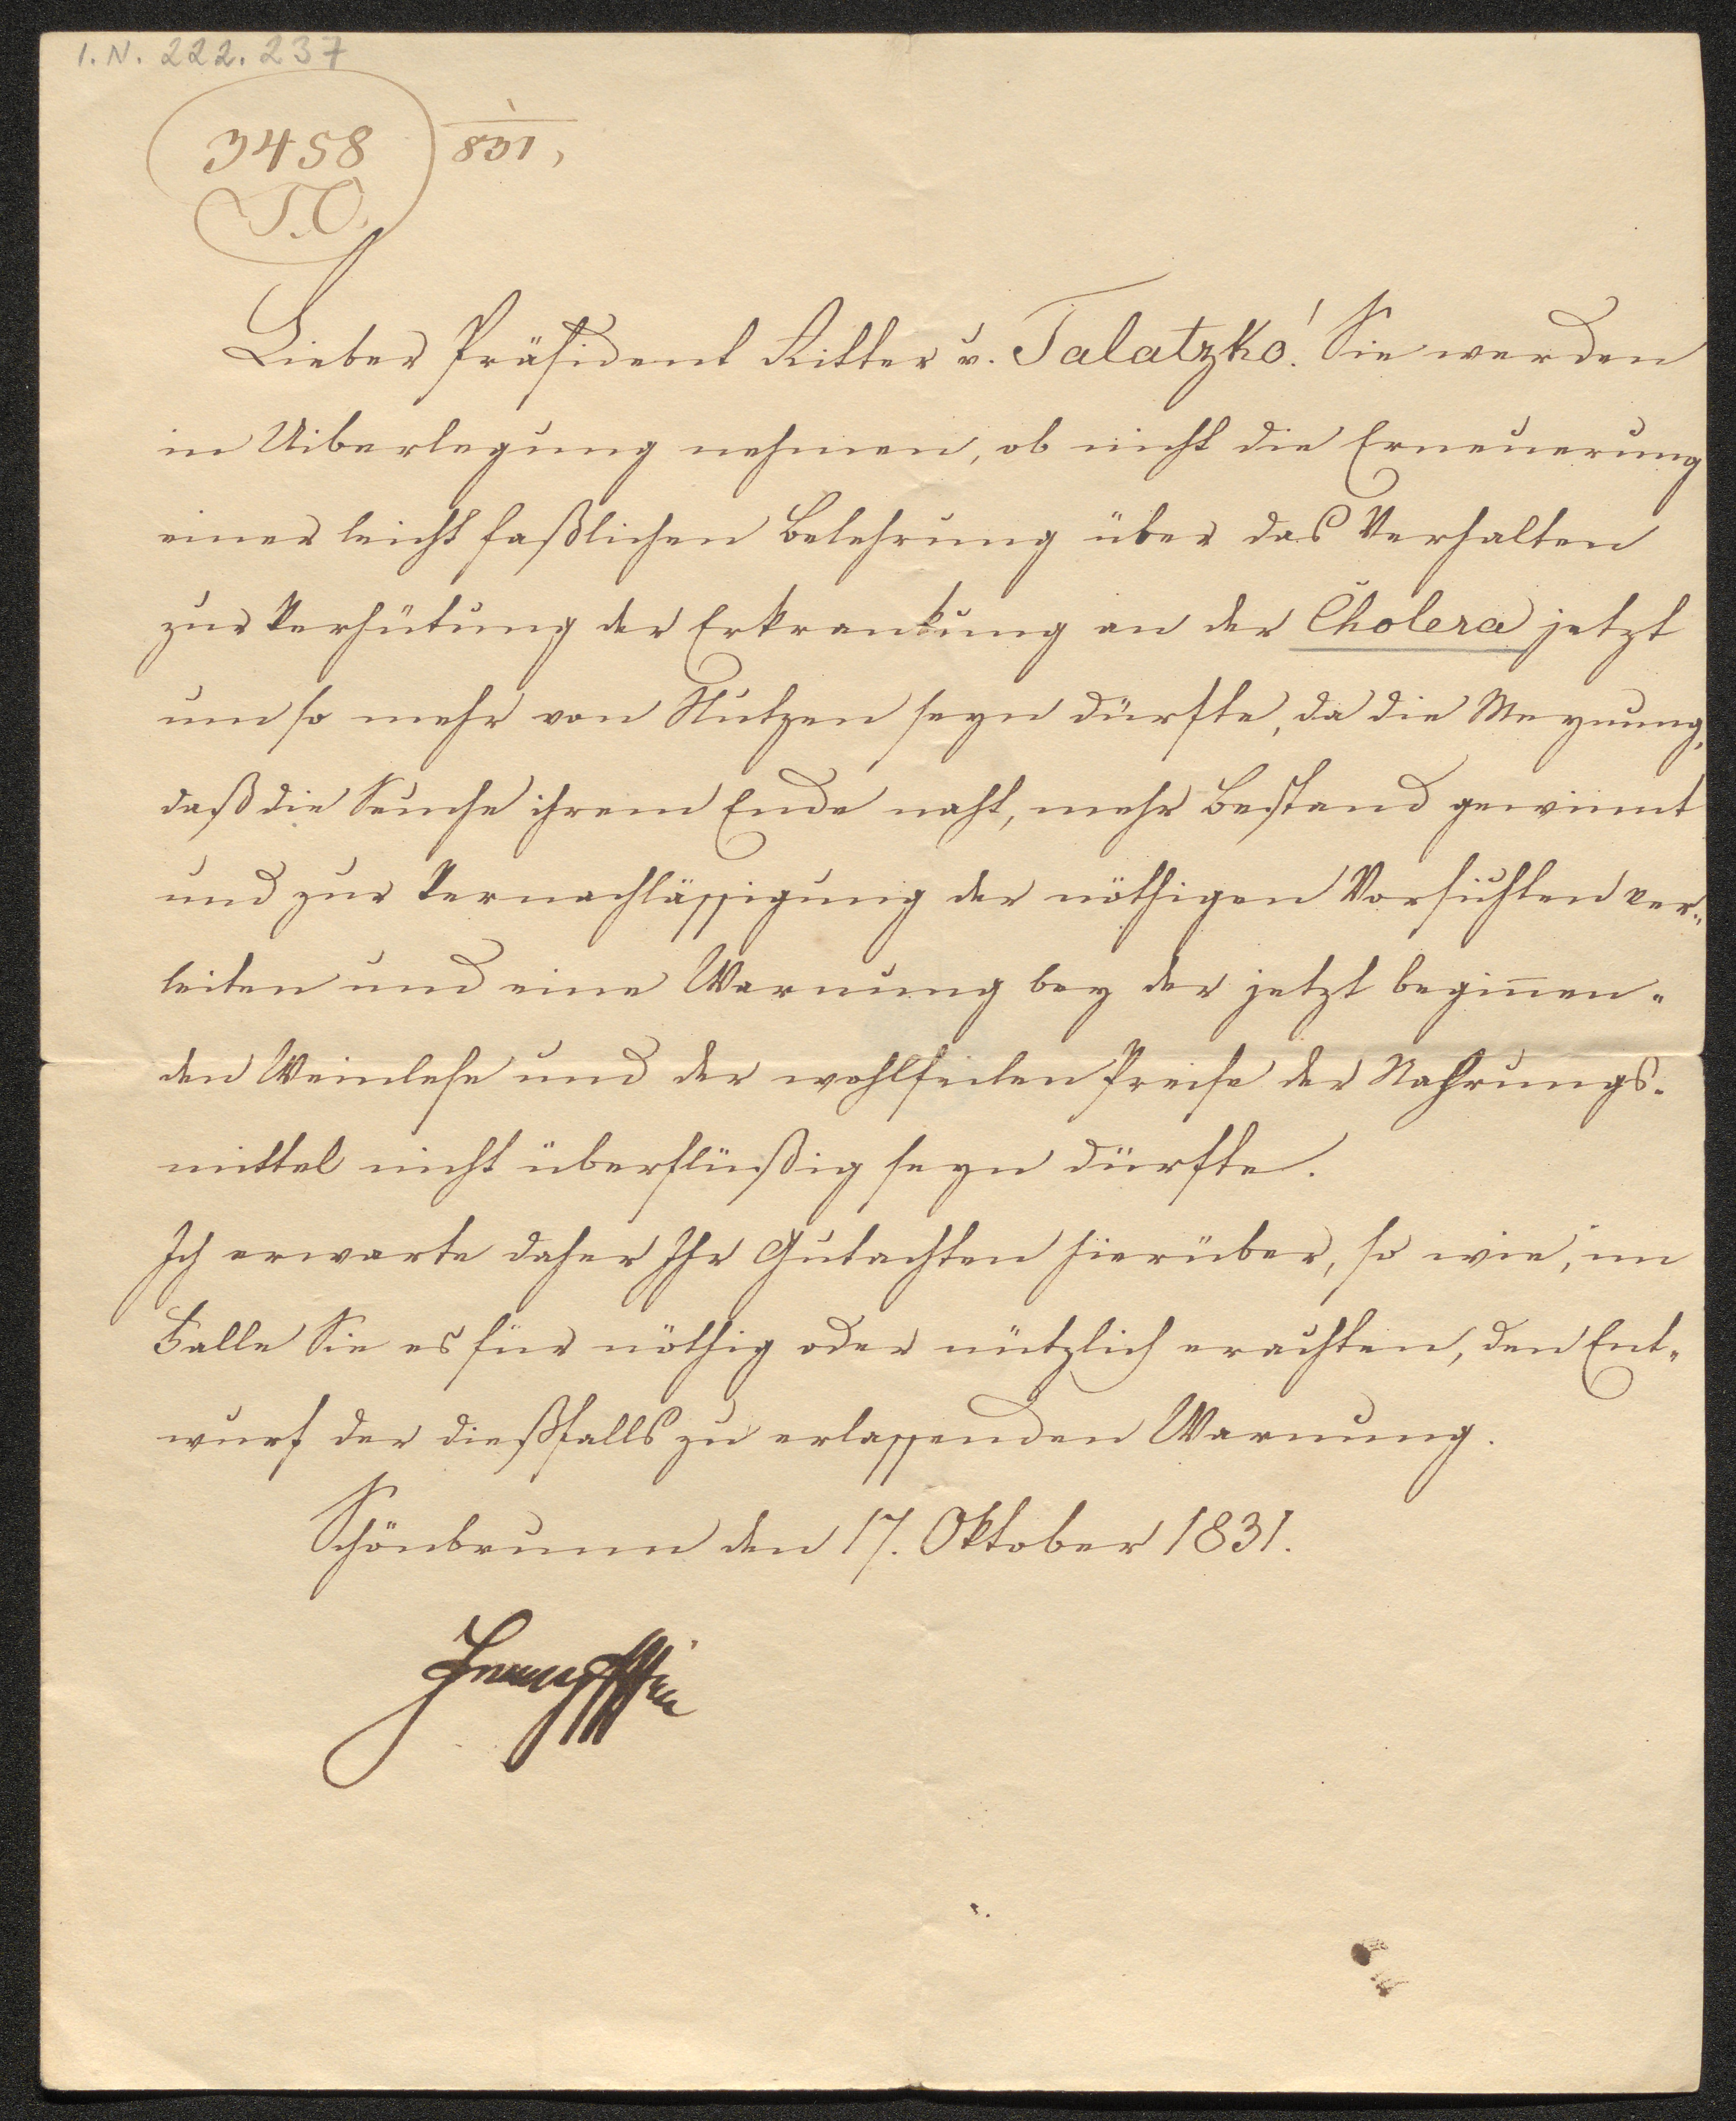 I.N. 222.237
3458
831,
T.O.
Lieber Präsident Ritter v. Talatzko! Sie werden
in Uiberlegung nehmen, ob nicht die Erneuerung
einer leicht faßlichen Belehrung über das Verhalten
zur Verhütung der Erkrankung an der Cholera jetzt
um so mehr von Nutzen seyn dürfte, da die Meynung,
daß die Seuche ihrem Ende naht, mehr Bestand gewinnt
und zur Vernachlässigung der nöthigen Vorsichten ver¬
leiten und eine Warnung bey der jetzt beginnen¬
den Weinlese und der wohlfeilen Preise der Nahrungs¬
mittel nicht überflüßig seyn dürfte.
Ich erwarte daher Ihr Gutachten hierüber, so wie, im
Falle Sie es für nöthig oder nützlich erachten, den Ent¬
wurf der dießfalls zu erlassenden Warnung.
Schönbrunn den 17. Oktober 1831.